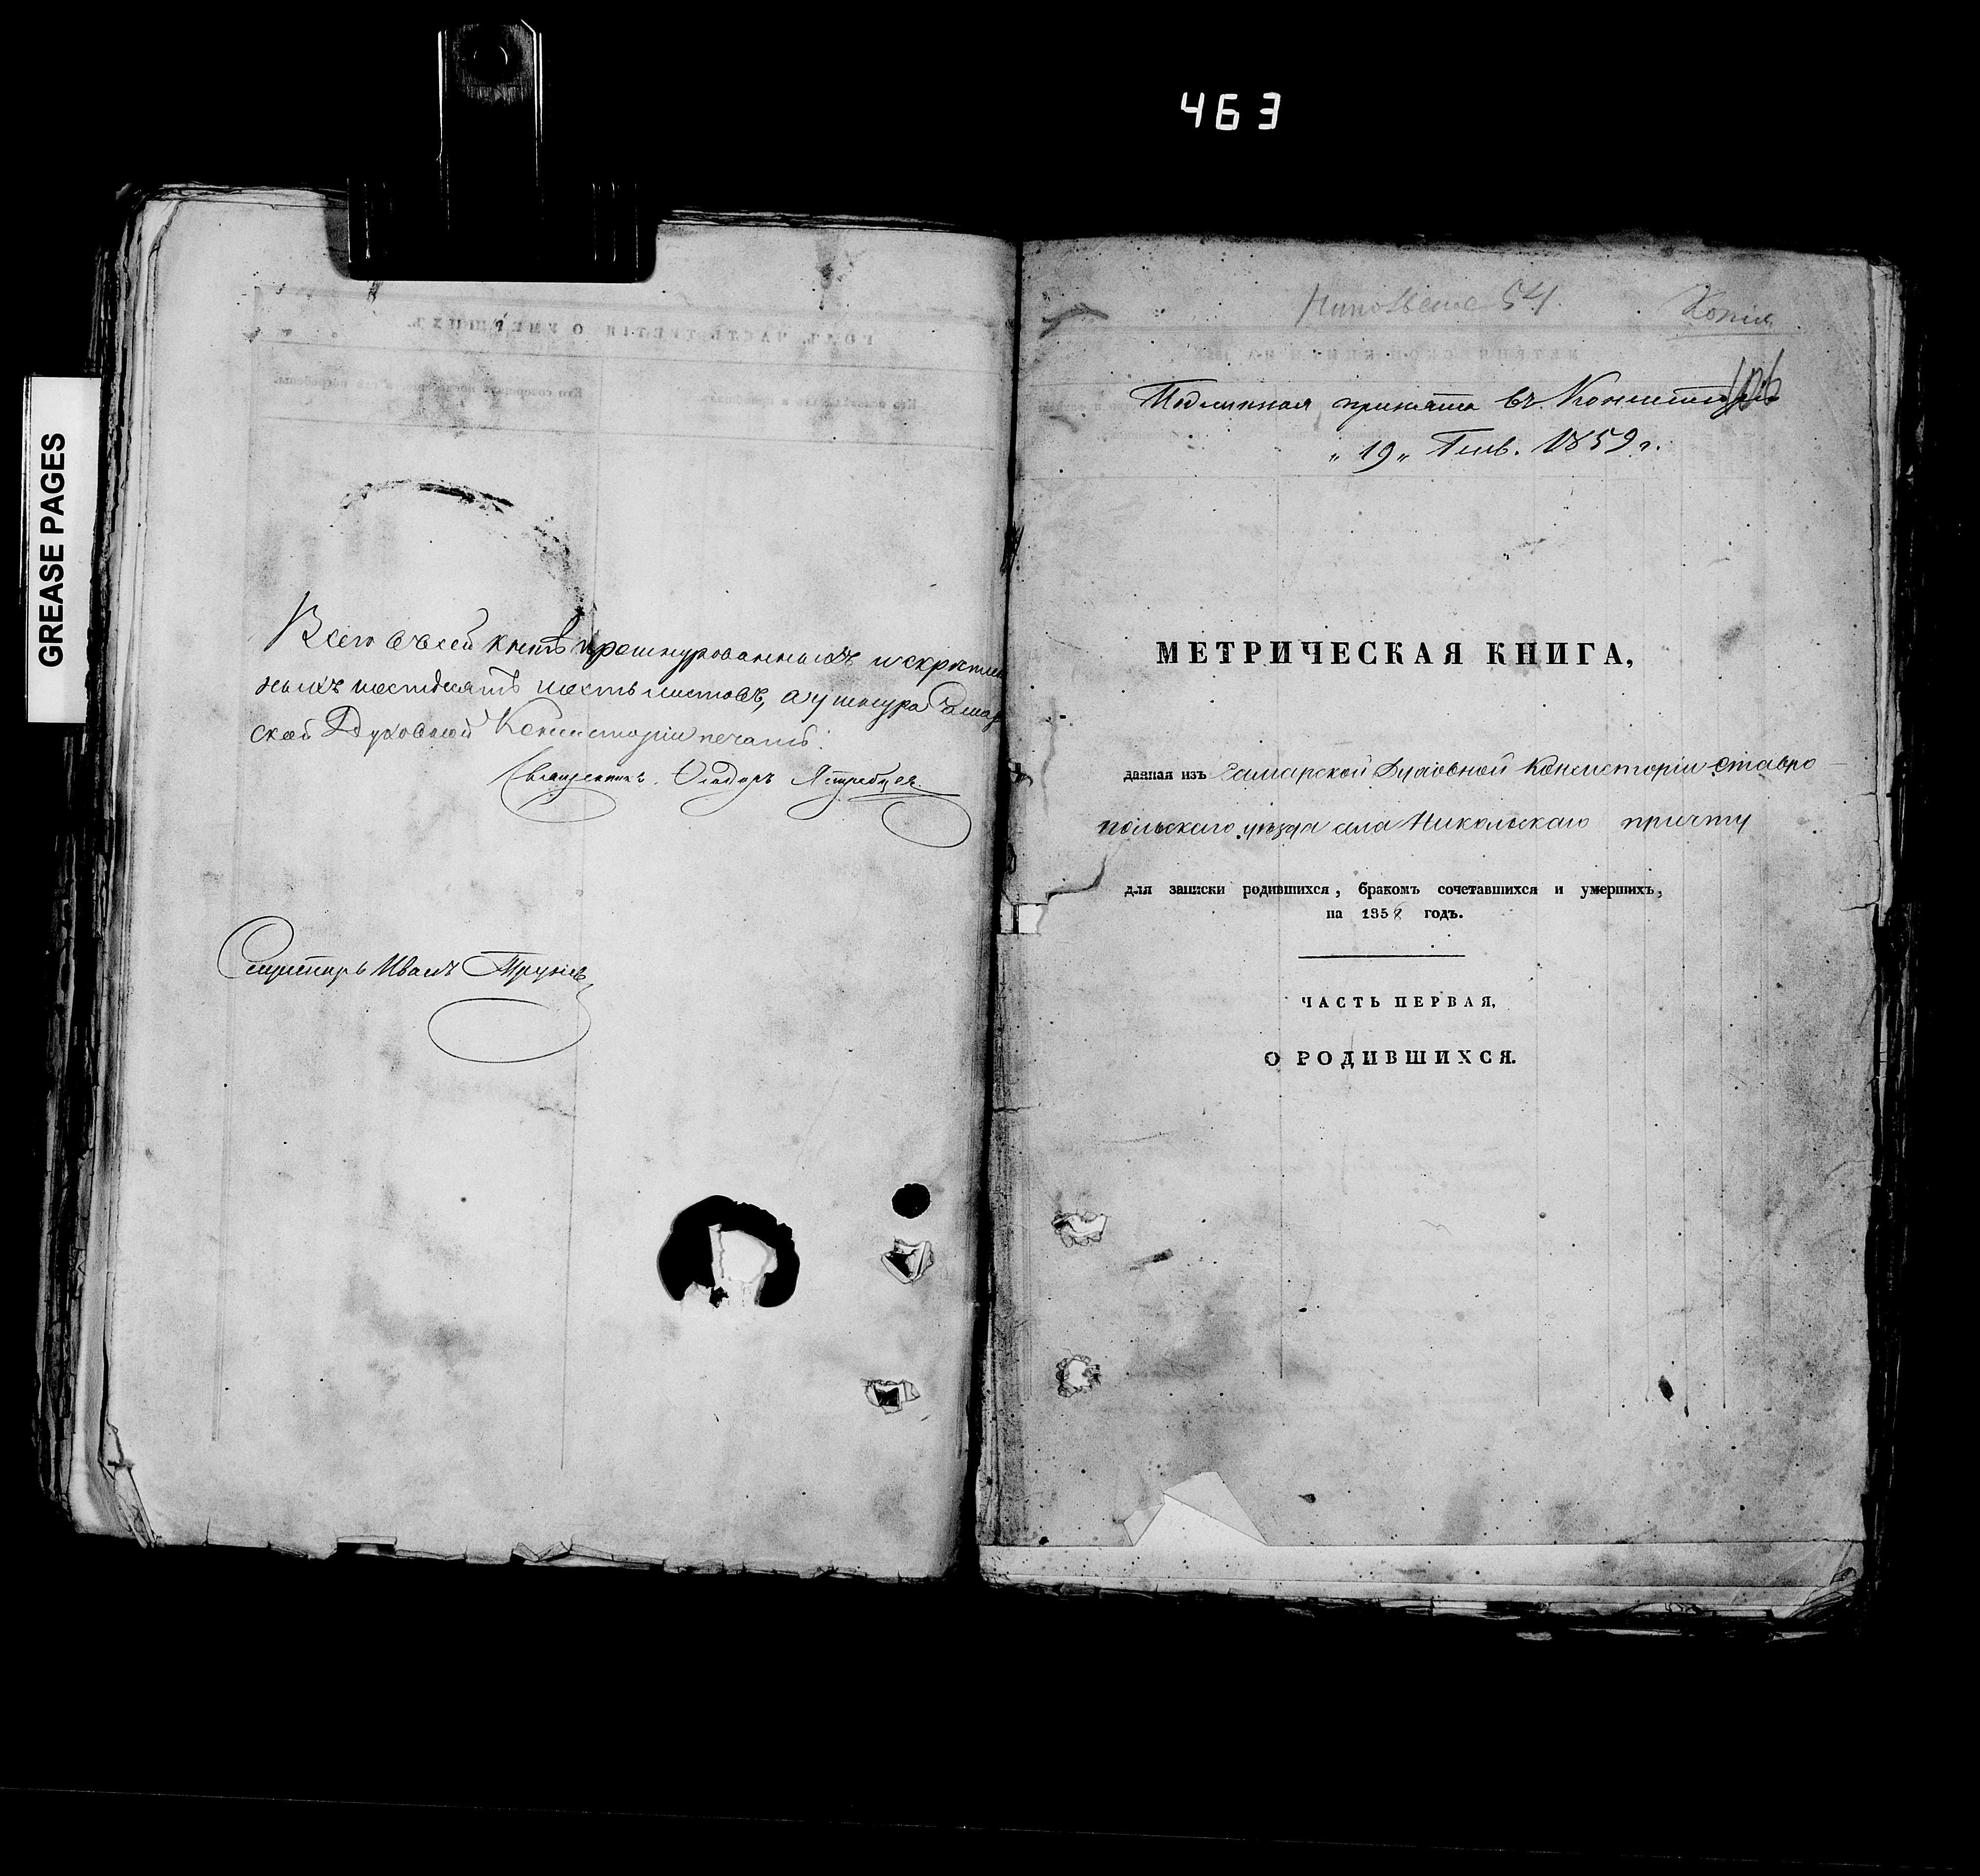 463
GREASE PAGES
Всего въ сей книгѣ прошнурованныхъ и скрѣплен
ныхъ шестдесятъ шесть листовъ, а у шнура Самар
ской Духовной Консисторіи печать.
Священникъ Ѳеодоръ Ястребцев
Секретарь Иванъ
54.
Копія
106
Подлинная принята въ Консисторію
„ 19 „ Генв. 1859 г.
МЕТРИЧЕСКАЯ КНИГА,
данная изъ Самарской Духовной Консисторіи Ставро-
польскаго уѣзда села Никольскаго причту
для записки родившихся, бракомъ сочетавшихся и умершихъ,
на 1858 годъ.
ЧАСТЬ ПЕРВАЯ,
О РОДИВШИХСЯ.